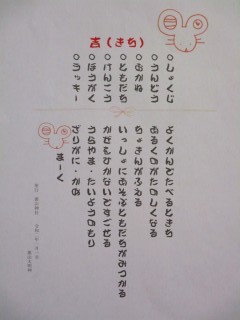 吉(きち)
○しょくじ
○うんどう
○おかね
○ともだち
○けんこう
○ほうがく
○ラッキー
よくかんでたべるときち
あるくのがたのしくなる
ちょきんがふえる
いっしょにあそぶともだちがみつかる
かぜもひかないですごせる
うらやま・たいようのもり
ざりがに・かめ
まーく